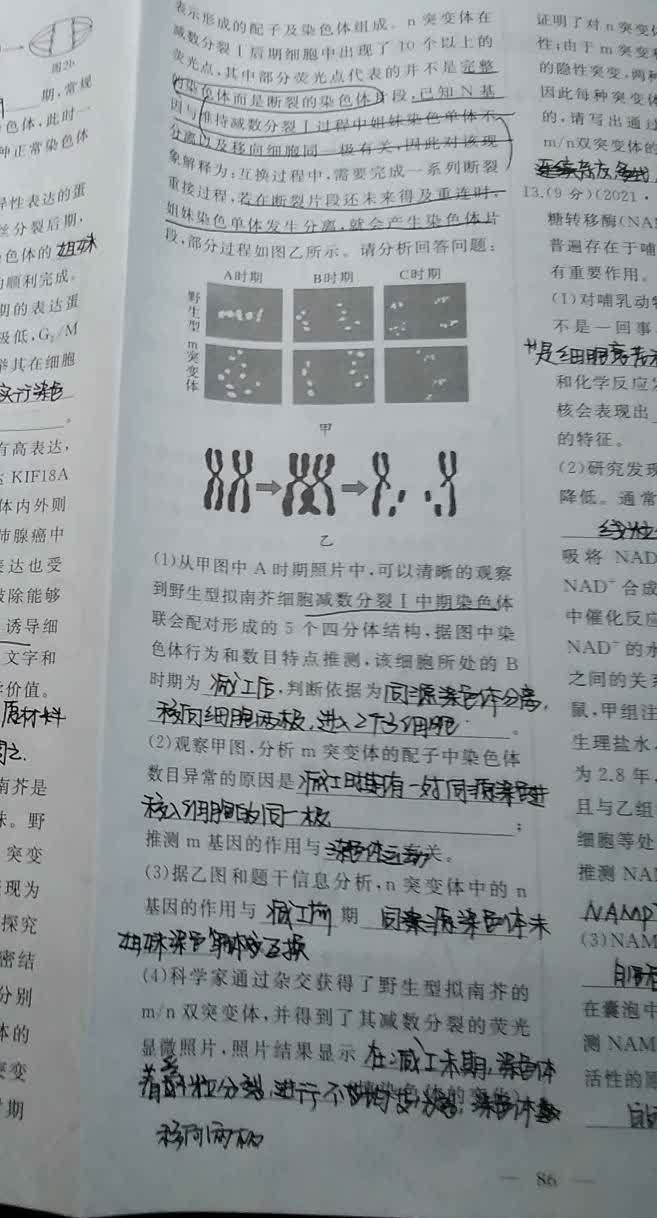 图2b
期,常规
色体,此时一
种正常染色体
异性表达的蛋
丝分裂后期,
色体的姐妹
的顺利完成。
期的表达蛋
极低,G₂/M
举其在细胞
实行染色
有高表达,
KIF18A
体内外则
肺腺癌中
表达也受
敲除能够
诱导细
文字和
价值。
原材料
南芥是
味。野
突变
表现为
探究
密结
分别
体的
突变
期
表示形成的配子及染色体组成。n突变体在
减数分裂Ⅰ后期细胞中出现了10个以上的
荧光点,其中部分荧光点代表的并不是完整
的染色体而是断裂的染色体片段,已知N基
因与维持减数分裂Ⅰ过程中姐妹染色单体不
分离以及移向细胞同一极有关,因此对该现
象解释为:互换过程中,需要完成一系列断裂
重接过程,若在断裂片段还未来得及重连时,
姐妹染色单体发生分离,就会产生染色体片
段,部分过程如图乙所示。请分析回答问题:
A时期 B时期 C时期
野生型
m突变体
甲
乙
(1)从甲图中A时期照片中,可以清晰的观察
到野生型拟南芥细胞减数分裂Ⅰ中期染色体
联会配对形成的5个四分体结构,据图中染
色体行为和数目特点推测,该细胞所处的B
时期为减Ⅰ后,判断依据为同源染色体分离,
移向细胞两极,进入2个子细胞。
(2)观察甲图,分析m突变体的配子中染色体
数目异常的原因是减Ⅰ时期有一对同源染色进
移入细胞的同一极;
推测m基因的作用与染色体运动关。
(3)据乙图和题干信息分析,n突变体中的n
基因的作用与减Ⅰ前期同源染色体未
姐妹染色单体交互换
(4)科学家通过杂交获得了野生型拟南芥的
m/n双突变体,并得到了其减数分裂的荧光
显微照片,照片结果显示在减Ⅰ末期,染色体
着丝粒分裂,进行不均等分裂,染色体
移向两极
86
证明了对n突变
性;由于m突变
的隐性突变,两种
因此每种突变体
的,请写出通过
m/n双突变体的
13.(9分)(2021·
糖转移酶(NA
普遍存在于哺
有重要作用。
(1)对哺乳动
不是一回事
是细胞衰老
和化学反应
核会表现出
的特征。
(2)研究发现
降低。通常
线粒
吸将NAD
NAD⁺合成
中催化反应
NAD⁺的水
之间的关系
鼠,甲组注
生理盐水,
为2.8年,
且与乙组
细胞等处
推测NA
NAMP
(3)NAM
在囊泡中
测NAM
活性的原